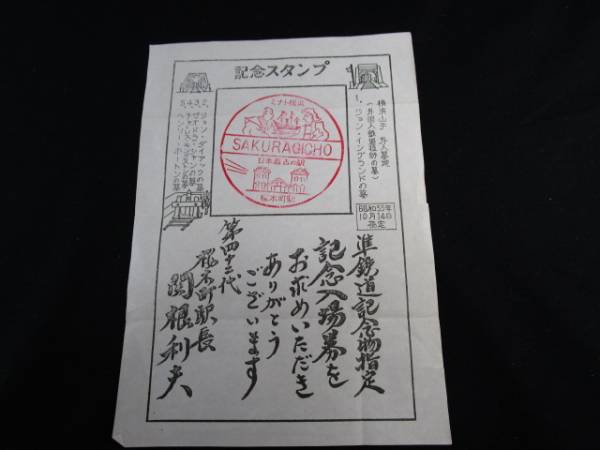 記念スタンプ
横浜山手 外人墓地
(外国人鉄道技師の墓)
1. ジョン・イングランドの墓
2. ジョン・ダイアックの墓
5. ヘンリー・ホートンの墓
ミナト横浜
SAKURAGICHO
日本最古の駅
桜木町駅
昭和55年
10月14日
指定
準鉄道記念物指定
記念入場券を
お求めいただき
ありがとう
ございます
第四十二代
桜木町駅長
関根利夫